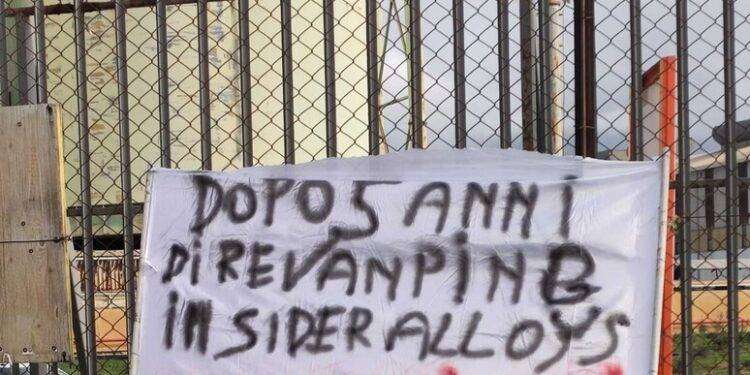 DOPO 5 ANNI
DI REVANPING
IN SIDER ALLOYS